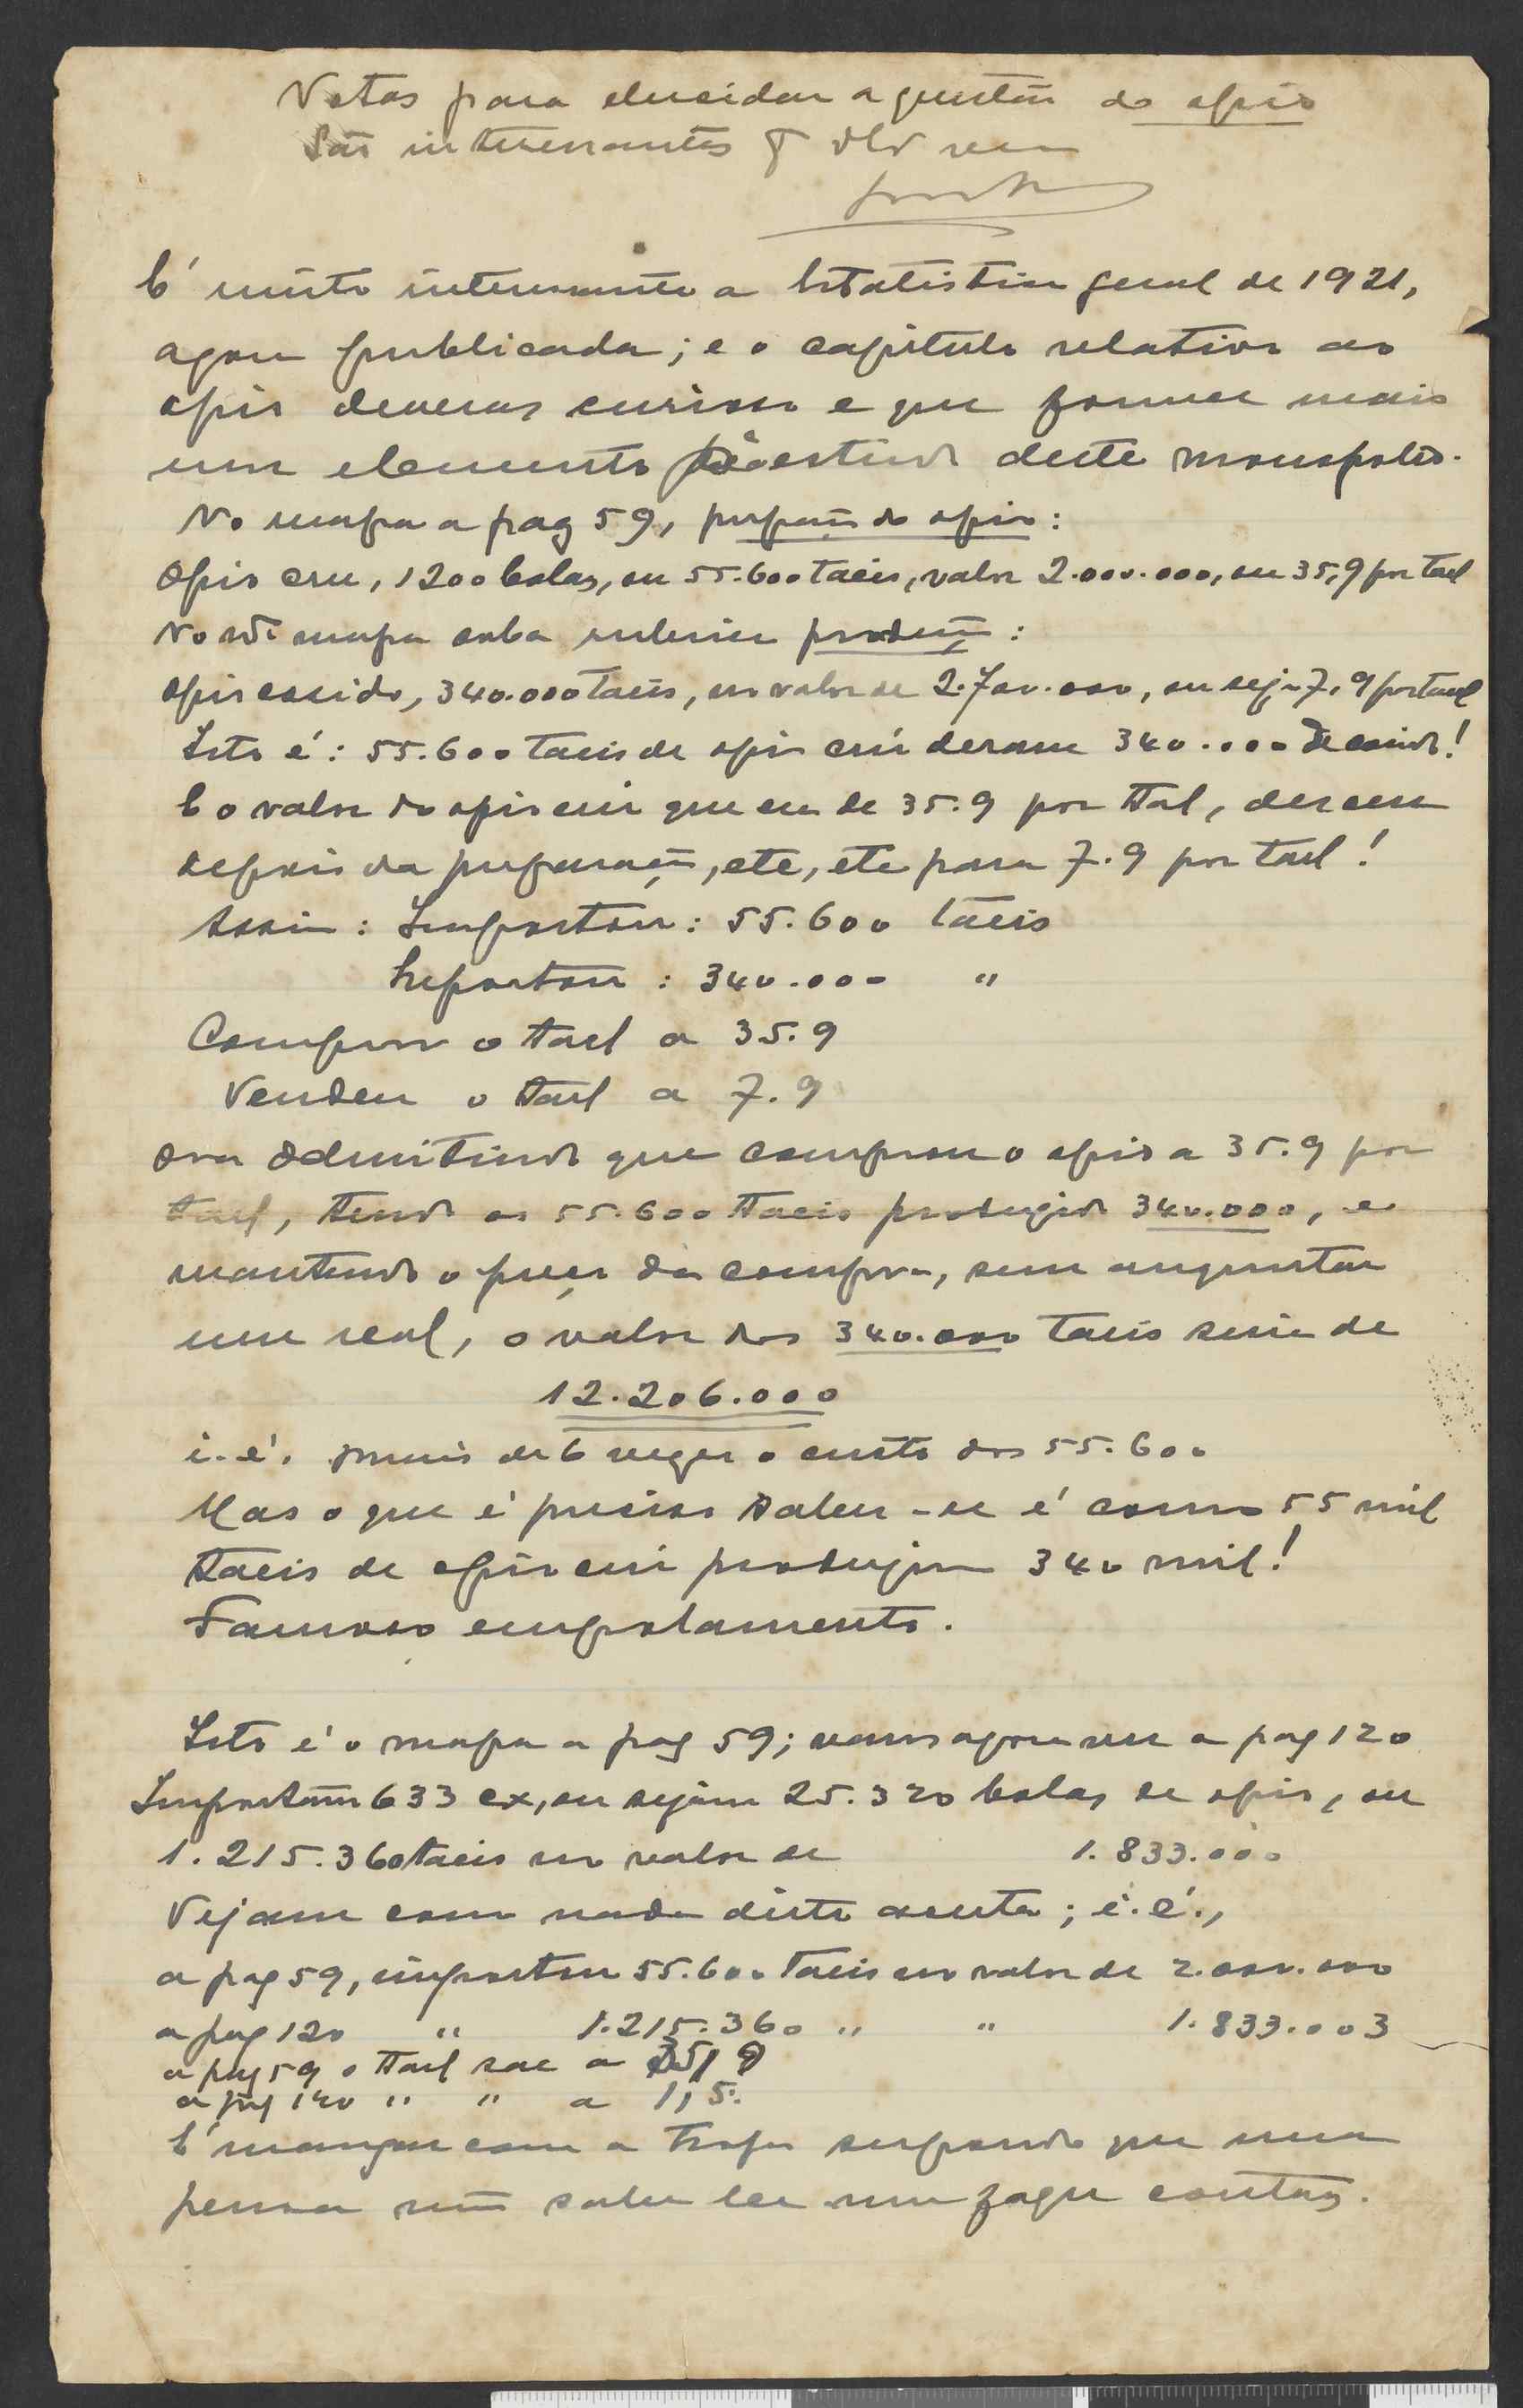 Notas para elucidar a questão do opio
São interessantes
É muito interessante a Estatistica geral de 1921,
agora publicada; e o capitulo relativo ao
opio deveras curioso e que fornece mais
um elemento estudo deste monopolio.
No mapa a pag 59, preparação do opio:
Opio cru, 1200 bolas, ou 55.600 taeis, valor 2.000.000, ou 35,9 por tael
No mapa sob a producção:
opio cosido, 340.000 taeis, no valor de 2.700.000, ou seja 7,9 por tael
Isto é: 55.600 taeis de opio crú deram 340.000 de cosido!
E o valor do opio crú que era de 35.9 por tael, desceu
depois da preparação, etc, etc para 7.9 por tael!
Assim: Importou: 55.600 taeis
Exportou: 340.000 "
Comprou o tael a 35.9
Vendeu o tael a 7.9
Ora admitindo que comprou o opio a 35.9 por
tael, tendo os 55.600 taeis produzido 340.000, e
mantendo o preço da compra, sem augmentar
um real, o valor dos 340.000 taeis seria de
12.206.000
i.é. mais de 6 vezes o custo dos 55.600
Mas o que é preciso saber-se é como 55 mil
taeis de opio crú produzem 340 mil!
Famoso empolamento.
Isto é o mapa a pag 59; vamos agora ver a pag 120
Importam 633 cx, ou sejam 25.320 bolas de opio, ou
1.215.360 taeis no valor de 1.833.000
Vejam como nada disto acerta; i.é.,
a pag 59, importou 55.600 taeis no valor de 2.000.000
a pag 120 " 1.215.360 " " 1.833.003
a pag 59 o tael sae a 35,9
a pag 120 " " a 1,5.
É mangar com a tropa supondo que uma
pessoa não sabe ler nem fazer contas.